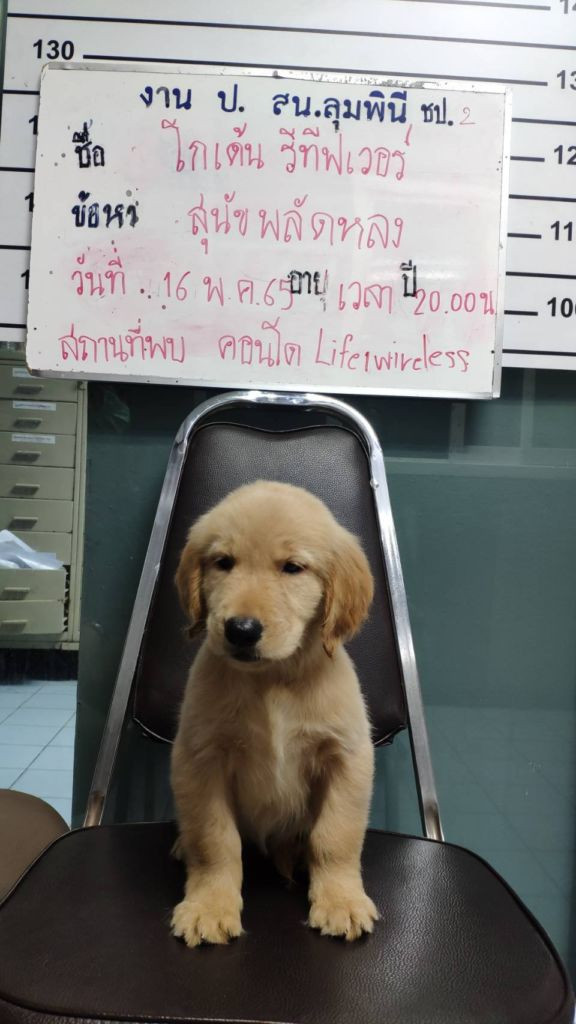 130
งาน ป. สน.ลุมพินี ชป. 2
ชื่อ โกเด้น รีทีฟเวอร์
ข้อหา สุนัขพลัดหลง
วันที่ . 16 พ.ค.65 อายุ เวลา ปี 20.00น
สถานที่พบ คอนโด Life1wireless
12
11
100